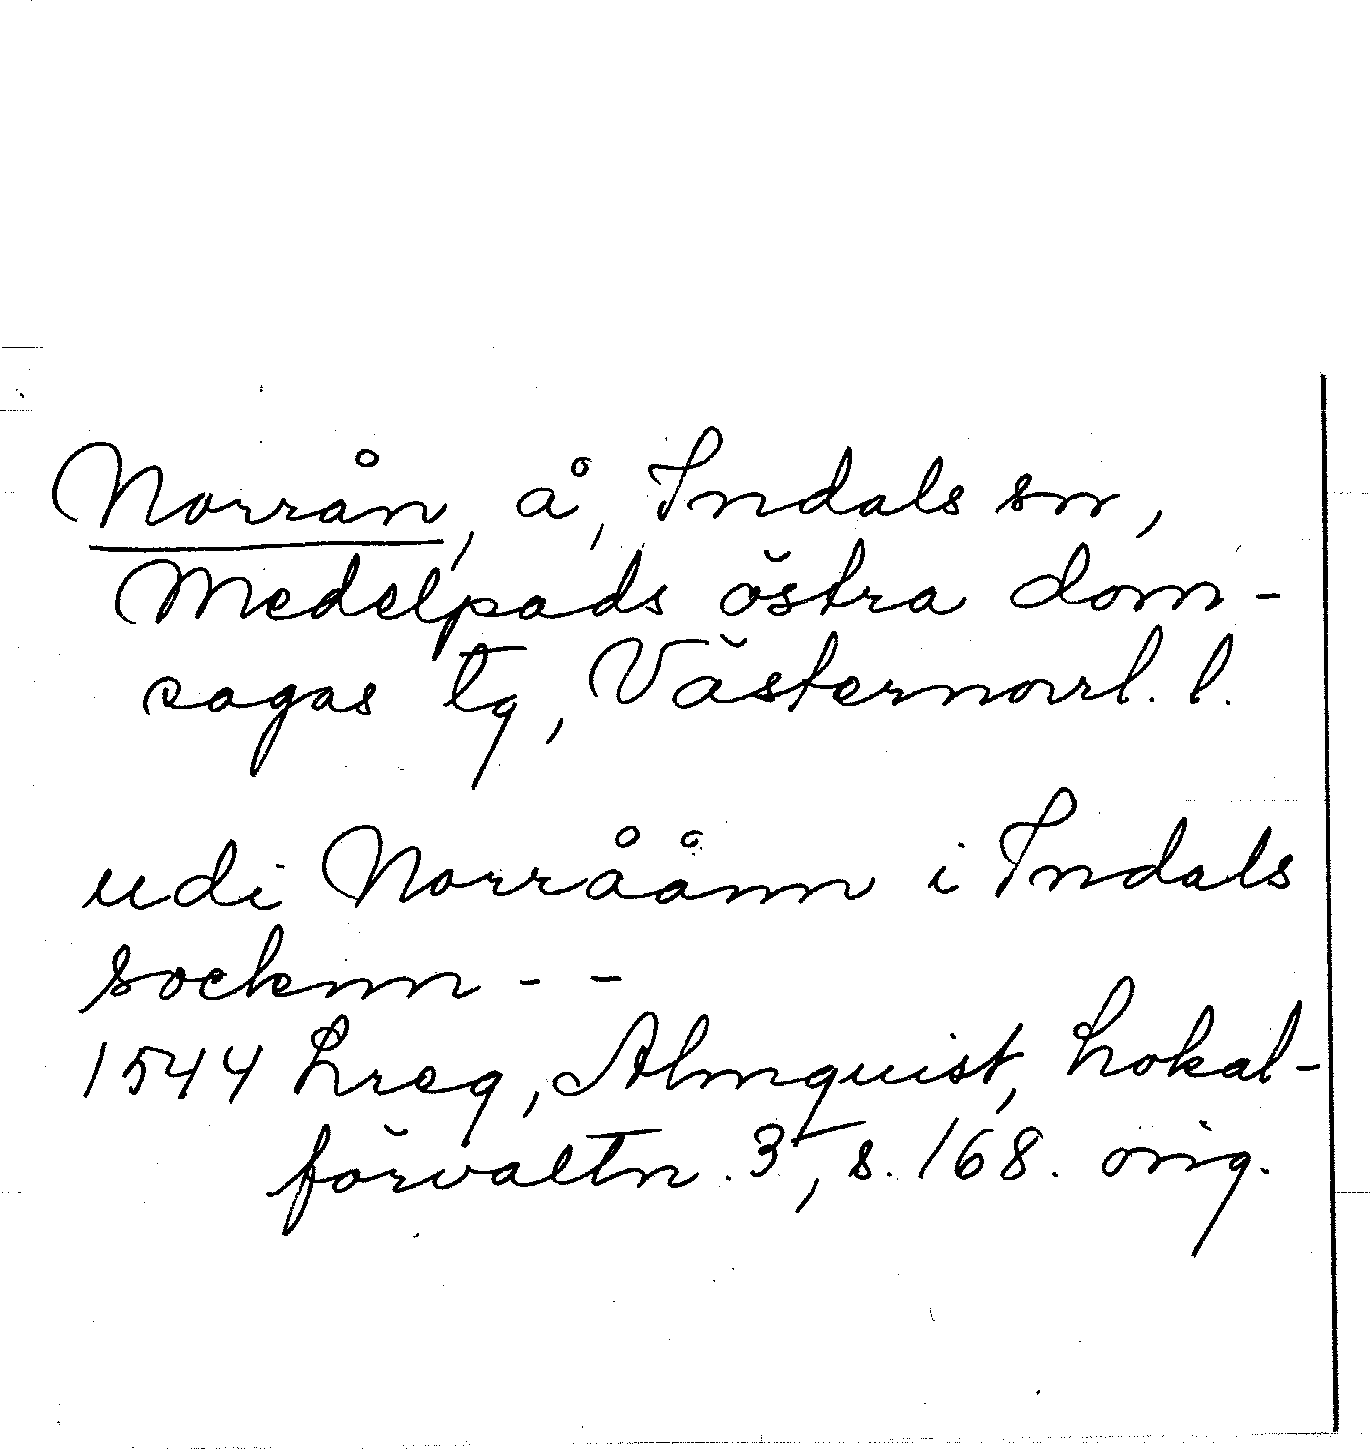 Norrån, å, Indals sn,
Medelpads östra dom-
sagas tg, Västernorrl. l.
udi Norråånn i Indals
socknn - -
1544 Lreg, Almquist, Lokal-
förvaltn. 3, s. 168. orig.